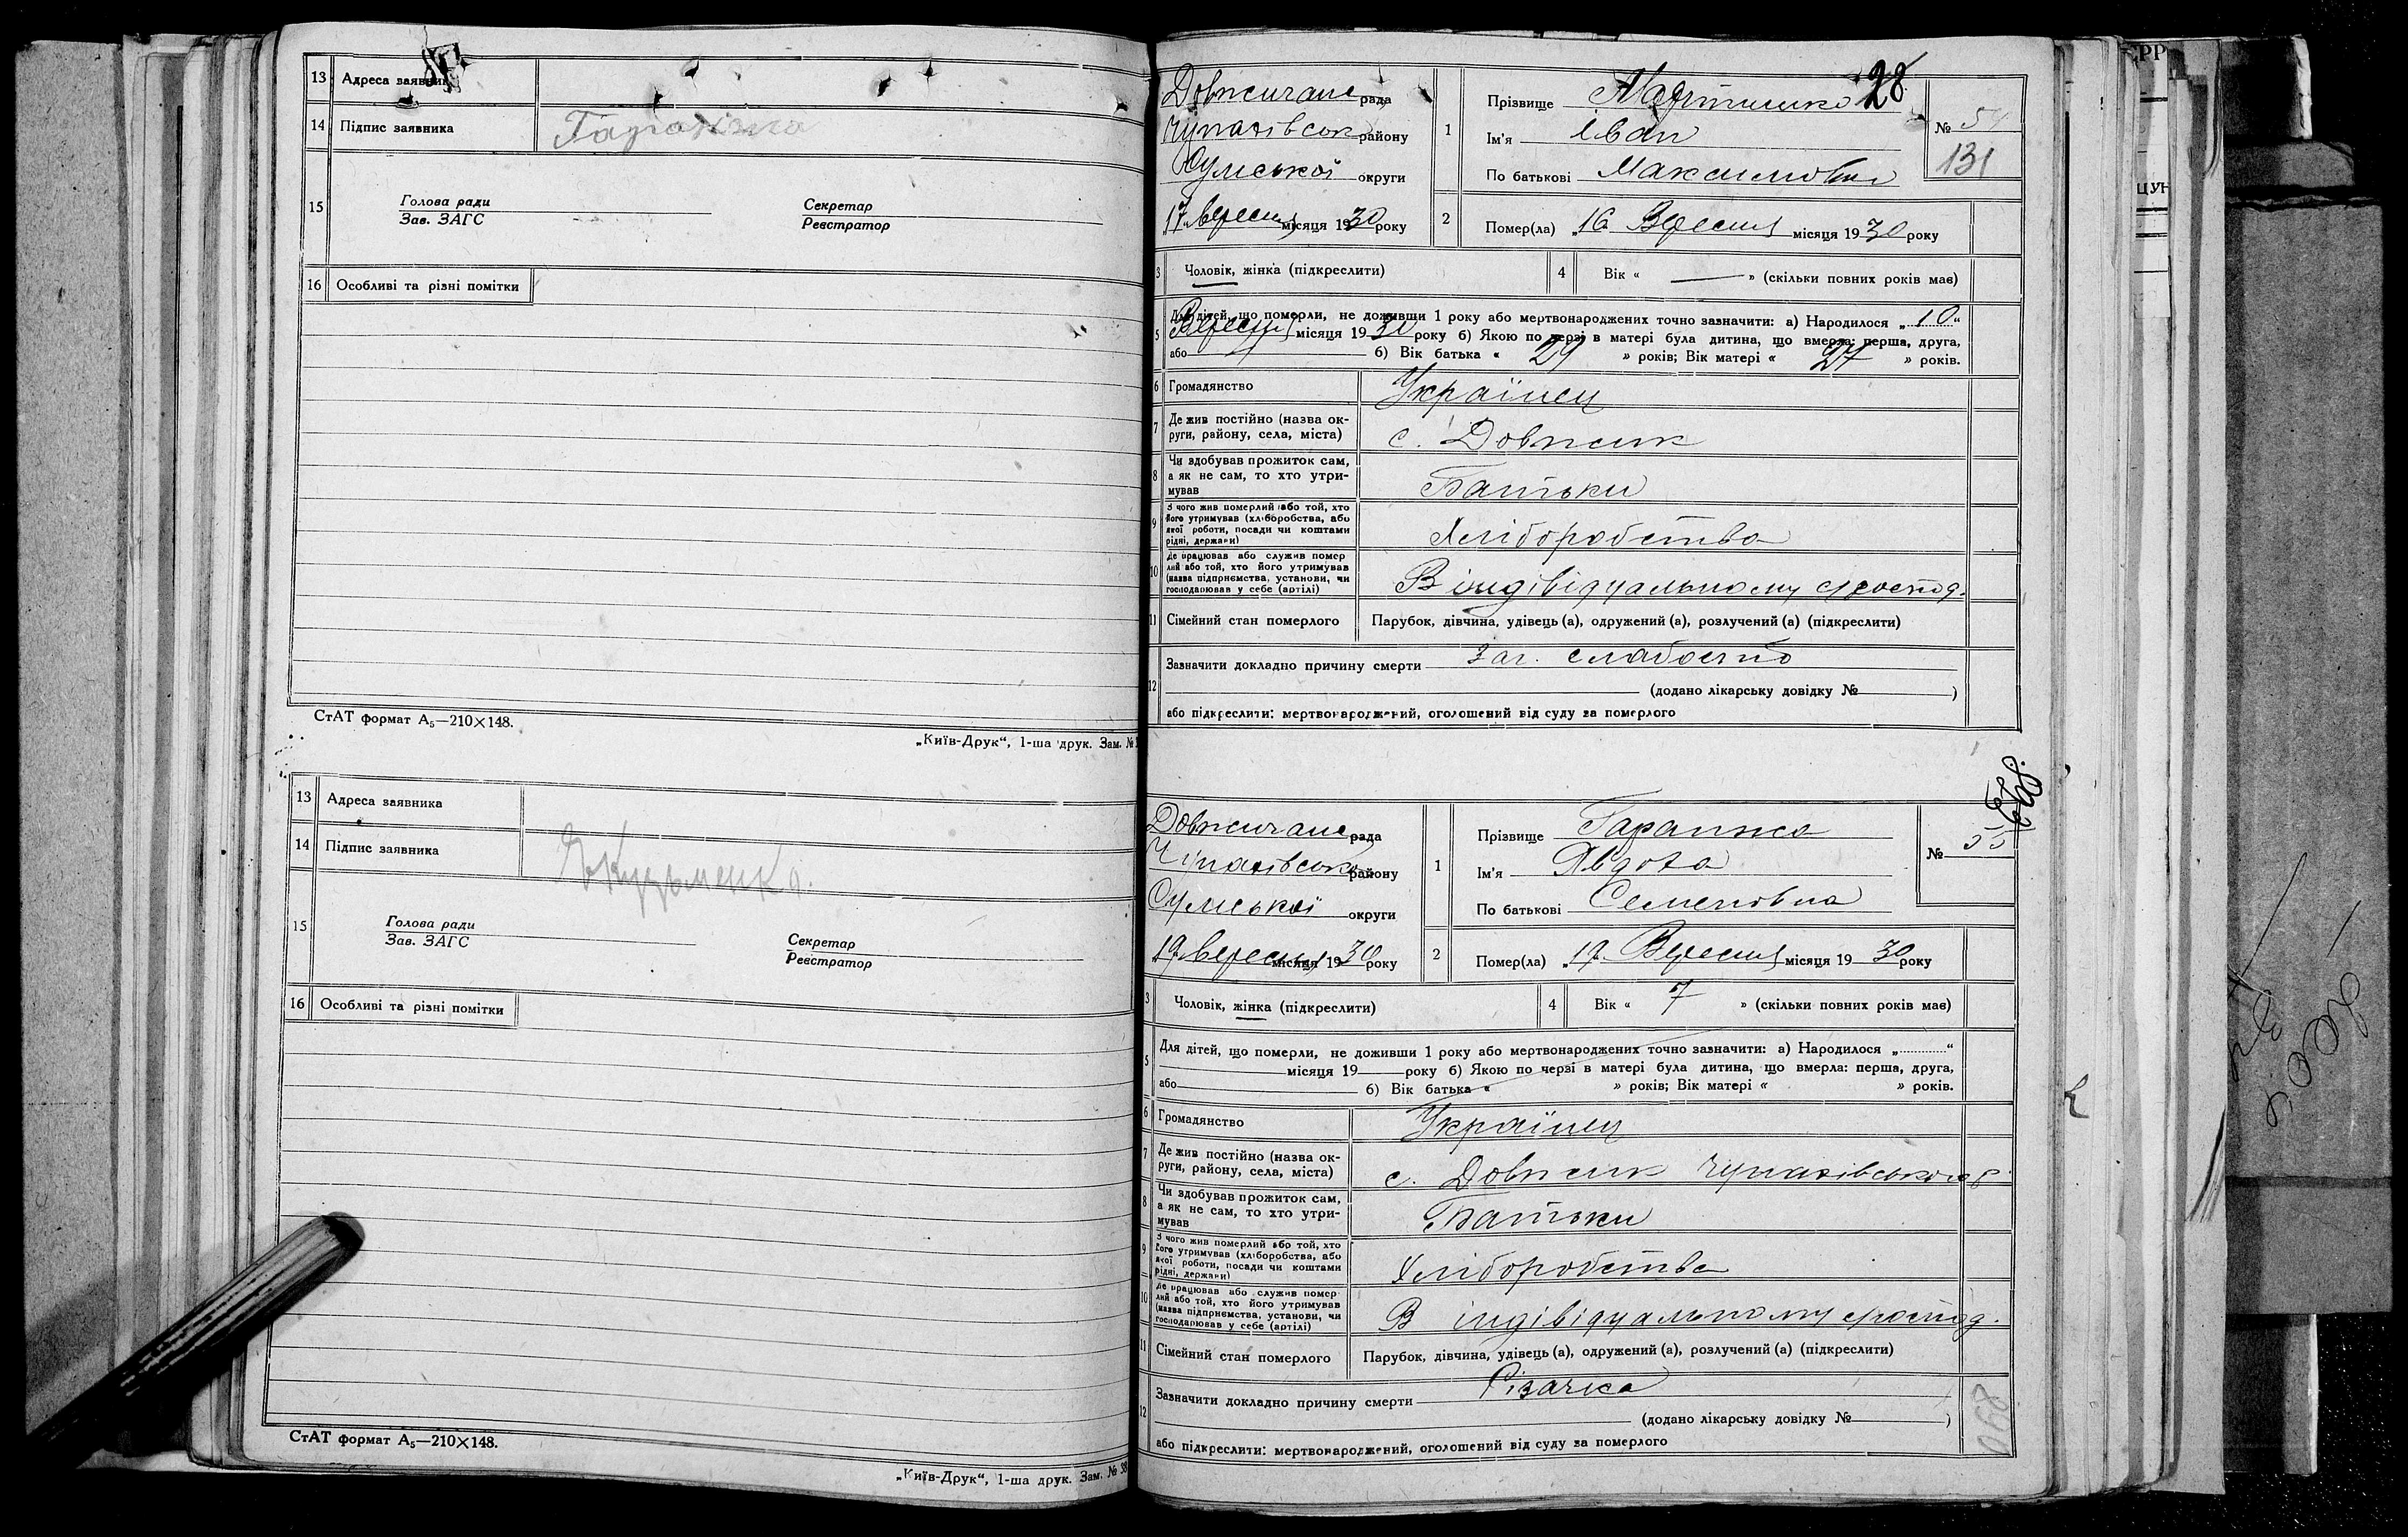 13 Адреса заявника
14 Підпис заявника
15 Голова ради Секретар
Зав. ЗАГС Реєстратор
16 Особливі та різні помітки
СтАТ формат А₅—210×148.
„Київ-Друк“, 1-ша друк. Зам. №
13 Адреса заявника
14 Підпис заявника Кузьменко.
15 Голова ради Секретар
Зав. ЗАГС Реєстратор
16 Особливі та різні помітки
СтАТ формат А₅—210×148.
„Київ-Друк“, 1-ша друк. Зам. № 38
28
Довжичане рада
Чупахівськ району
Сумської округи
„17 вересня місяця 1930 року
1 Прізвище
Ім'я Іван
По батькові Максимович
№ 54
131
2 Помер(ла) „16 Вересня місяця 1930 року
3 Чоловік, жінка (підкреслити) 4 Вік « — » (скільки повних років має)
5 Для дітей, що померли, не доживши 1 року або мертвонароджених точно зазначити: а) Народилося „10“
Вересня місяця 1930 року б) Якою по черзі в матері була дитина, що вмерла: перша, друга,
або б) Вік батька « 29 » років; Вік матері « 27 » років.
6 Громадянство Українец
7 Де жив постійно (назва округи, району, села, міста) с. Довжик
8 Чи здобував прожиток сам, а як не сам, то хто утримував Батьки
9 З чого жив померлий або той, хто його утримував (хліборобства, або якої роботи, посади чи коштами рідні, держави) Хліборобства
10 Де працював або служив померлий або той, хто його утримував (назва підприємства, установи, чи господарював у себе (артілі) В індівідуальному господ.
11 Сімейний стан померлого Парубок, дівчина, удівець (а), одружений (а), розлучений (а) (підкреслити)
12 Зазначити докладно причину смерти заг. слабостю
(додано лікарську довідку № )
або підкреслити: мертвонароджений, оголошений від суду за померлого
Довжичане рада
Чупахівськ району
Сумської округи
„19 вересня місяця 1930 року
1 Прізвище Гаранжа
Ім'я Явдоха
По батькові Семеновна
№ 55
2 Помер(ла) „19 Вересня місяця 1930 року
3 Чоловік, жінка (підкреслити) 4 Вік « 7 » (скільки повних років має)
5 Для дітей, що померли, не доживши 1 року або мертвонароджених точно зазначити: а) Народилося „ “
місяця 19 року б) Якою по черзі в матері була дитина, що вмерла: перша, друга,
або б) Вік батька « » років; Вік матері « » років.
6 Громадянство Українец
7 Де жив постійно (назва округи, району, села, міста) с. Довжик Чупахівського р
8 Чи здобував прожиток сам, а як не сам, то хто утримував Батьки
9 З чого жив померлий або той, хто його утримував (хліборобства, або якої роботи, посади чи коштами рідні, держави) Хліборобства
10 Де працював або служив померлий або той, хто його утримував (назва підприємства, установи, чи господарював у себе (артілі) В індівідуальному господ.
11 Сімейний стан померлого Парубок, дівчина, удівець (а), одружений (а), розлучений (а) (підкреслити)
12 Зазначити докладно причину смерти Різачка
(додано лікарську довідку № )
або підкреслити: мертвонароджений, оголошений від суду за померлого